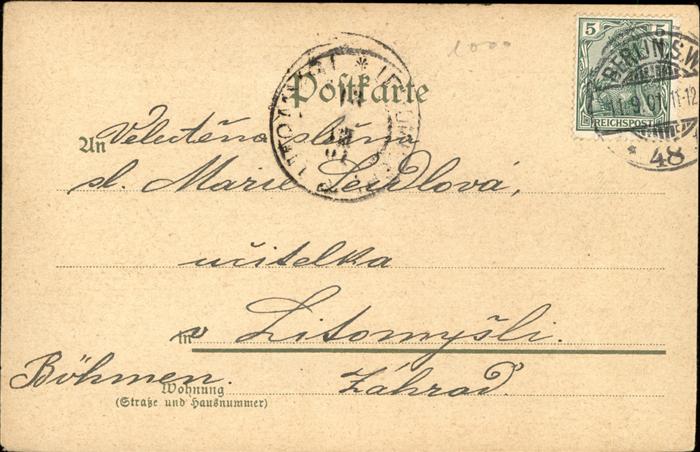 5 5
1000
BERLIN S.W.
11.9.01.11-12
* 48
REICHSPOST
Postkarte
An Velectěna slečna
sl. Marie Seidlová,
učitelka
in v Litomyšli.
Böhmen. Záhrad.
Wohnung
(Straße und Hausnummer)